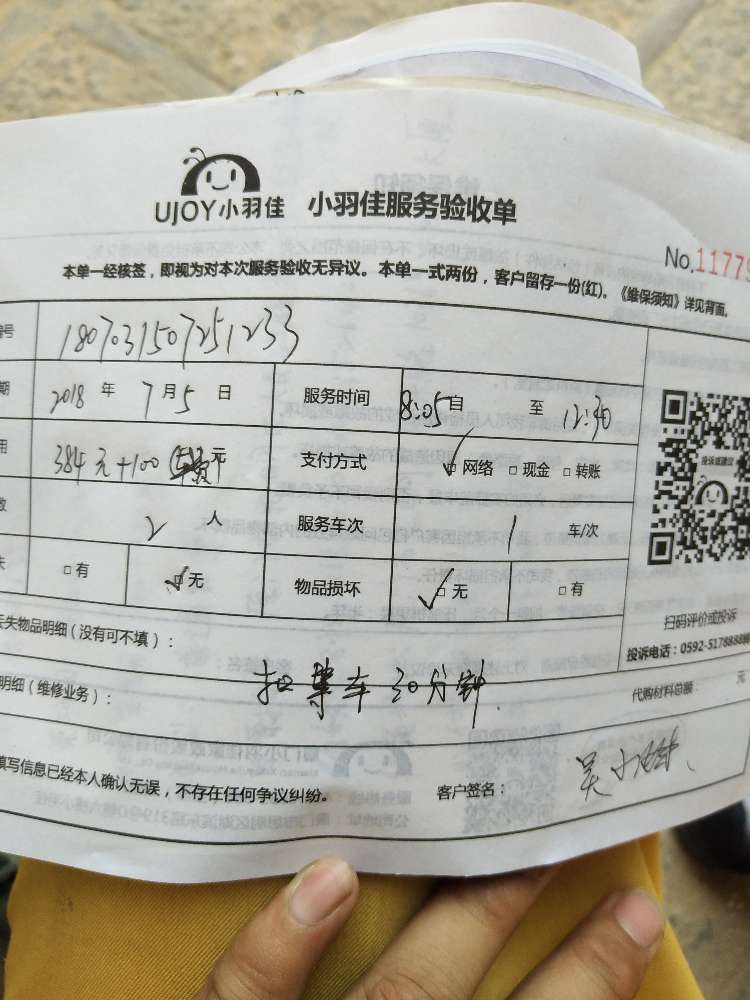 UJOY小羽佳 小羽佳服务验收单
No.11779
本单一经核签，即视为对本次服务验收无异议。本单一式两份，客户留存一份(红)。《维保须知》详见背面。
号 1807031507251233
期 2018 年 7 月 5 日 服务时间 8:05 自 至 12:30
用 384元+100(车费)元 支付方式 网络 现金 转账
数 2 人 服务车次 1 车/次
失 有 无 物品损坏 无 有
投诉或建议
扫码评价或投诉
投诉电话：0592-5178888
丢失物品明细（没有可不填）：
明细（维修业务）： 扣等车30分钟 代购材料总额： 元
填写信息已经本人确认无误，不存在任何争议纠纷。 客户签名： 吴小